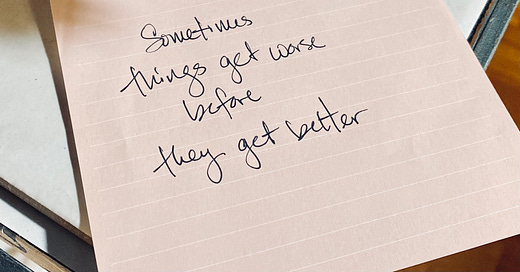 Sometimes
things get worse
before
they get better